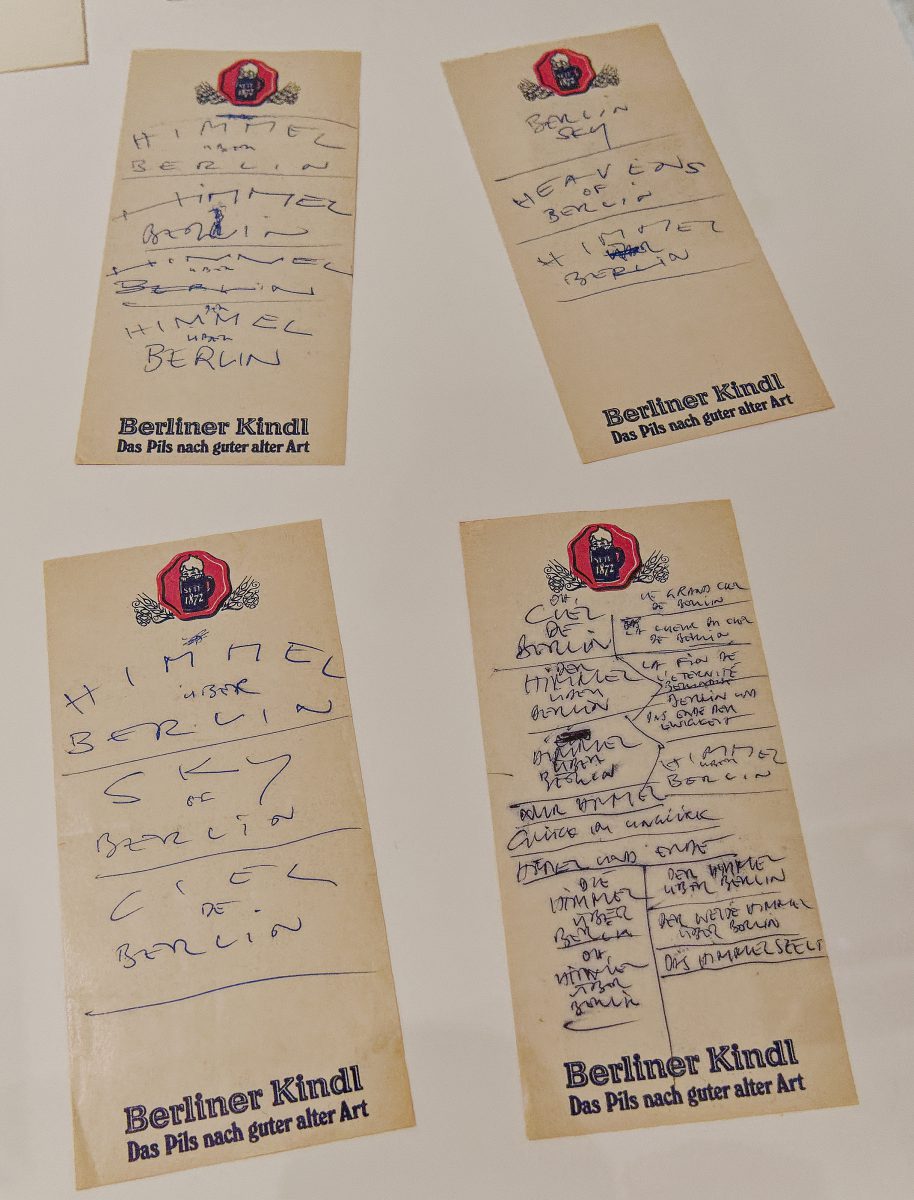 SEIT
1872
HIMMEL
ÜBER
BERLIN
HIMMEL
BERLIN
HIMMEL
ÜBER
BERLIN
DER
HIMMEL
ÜBER
BERLIN
Berliner Kindl
Das Pils nach guter alter Art
SEIT
1872
BERLIN
SKY
HEAVENS
OF
BERLIN
HIMMEL
BERLIN
Berliner Kindl
Das Pils nach guter alter Art
SEIT
1872
HIMMEL
ÜBER
BERLIN
SKY
OF
BERLIN
CIEL
DE
BERLIN
Berliner Kindl
Das Pils nach guter alter Art
SEIT
1872
OH,
CIEL
DE
BERLIN
DER
HIMMEL
ÜBER
BERLIN
HIMMEL
ÜBER
BERLIN
LE GRAND CIEL
DE BERLIN
DE BERLIN
LA FIN DE
L'ETERNITÉ
BERLIN UND
DAS ENDE DER
EWIGKEIT
HIMMEL
ÜBER
BERLIN
GLÜCK IM UNGLÜCK
HIMMEL UND ERDE
DIE
HIMMEL
ÜBER
BERLIN
OH
HIMMEL
ÜBER
BERLIN
DER HIMMEL
ÜBER BERLIN
DER WEITE HIMMEL
ÜBER BERLIN
DAS HIMMELSZELT
Berliner Kindl
Das Pils nach guter alter Art